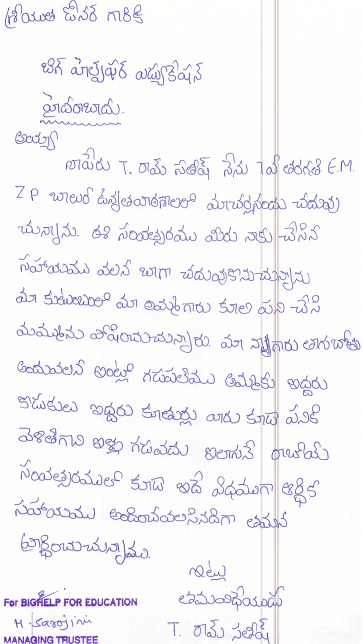 శ్రీయుత డోనర్ గారికి
బిగ్ హెల్ప్ఫర్ ఎడ్యుకేషన్
హైదరాబాదు.
అయ్యా
నాపేరు T. రామ్ సతీష్ నేను 7వ తరగతి E.M.
Z P బాలుర ఉన్నతపాఠశాలలో మాచర్లనందు చదువు
చున్నాను. ఈ సంవత్సరము మీరు నాకు చేసిన
సహాయము వలన బాగా చదువుకొనుచున్నాను
మా కుటుంబంలో మా అమ్మగారు కూలి పని చేసి
మమ్మును పోషించుచున్నారు. మా నాన్నగారు తాగుబోతు
అందువలన ఇంట్లో గడపలేము అమ్మకు ఇద్దరు
కొడుకులు ఇద్దరు కూతుర్లు వారు కూడా పనికి
వెళితేగాని ఇల్లు గడువదు ఇలాగునే రాబోయే
సంవత్సరములో కూడా ఇదే విధముగా ఆర్థిక
సహాయము అందించవలసినదిగా తమను
ప్రార్థించుచున్నాము.
ఇట్లు
తమవిధేయుడు
T. రామ్ సతీష్
For BIGHELP FOR EDUCATION
M. Sarojini
MANAGING TRUSTEE